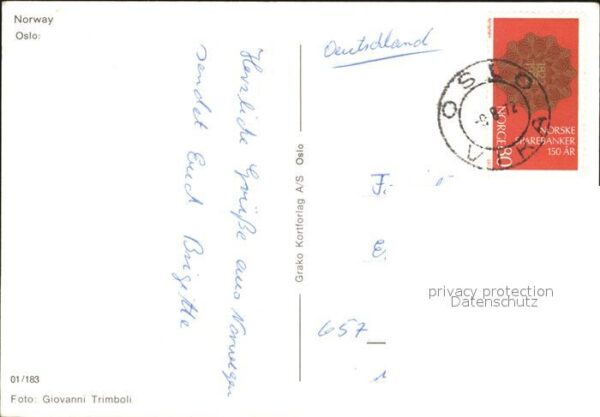 Norway
Oslo:
Herzliche Grüße aus Norwegen
sendet Euch Brigitte
01/183
Foto: Giovanni Trimboli
Grako Kortforlag A/S Oslo
Deutschland
OSLO
-9.8-72
VIKA
NORGE 80
NORSKE
SPAREBANKER
150 ÅR
F.
657
privacy protection
Datenschutz